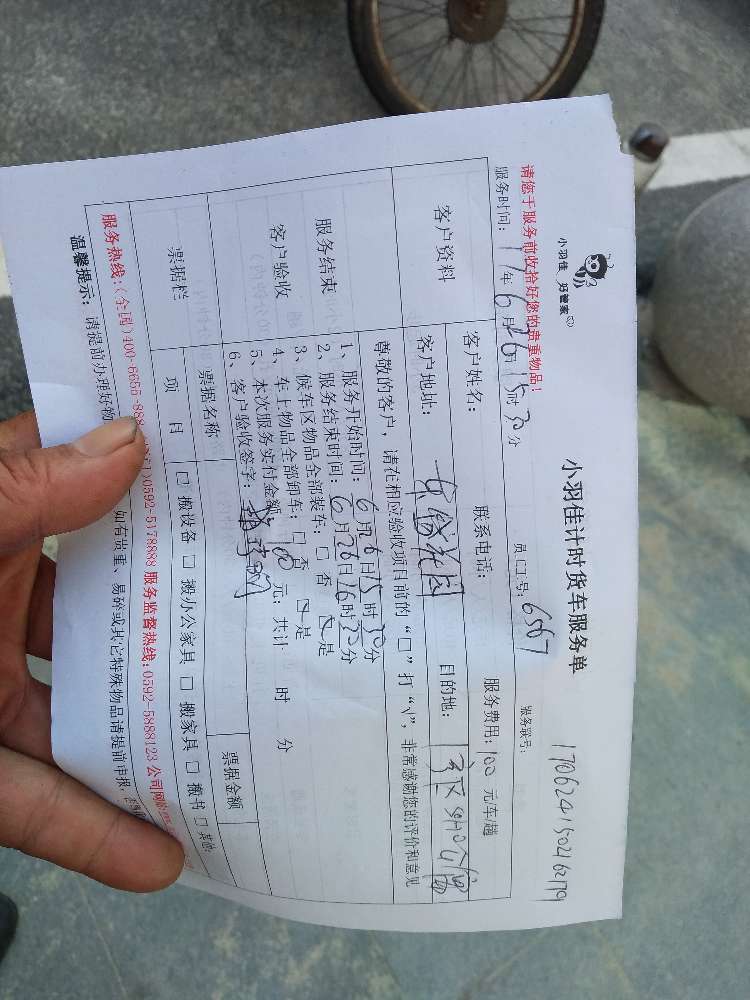 小羽佳 好管家
小羽佳计时货车服务单
请您于服务前收拾好您的贵重物品!
服务联号: 170624150216279
服务时间: 17年6月26日15时30分 员工号: 6567
客户资料 客户姓名: 联系电话: 服务费用: 100 元/车/趟
客户地址: 花园 目的地:
服务结束
客户验收
尊敬的客户,请在相应验收项目前的“□”打“√”,非常感谢您的评价和意见
1、服务开始时间: 6月26日15时30分
2、服务结束时间: 6月26日16时30分
3、候车区物品全部装车: □ 否 ☑ 是
4、车上物品全部卸车: □ 否 ☑ 是
5、本次服务实付金额: 100 元; 共计 时 分
6、客户验收签字:
票据栏 票据名称 票据金额
项目 □ 搬设备 □ 搬办公家具 □ 搬家具 □ 搬书 □ 其他:
服务热线:(全国)400-6655-888 0592-5178888 服务监督热线:0592-5888123 公司网
温馨提示: 请提前办理好物 如有贵重、易碎或其它特殊物品请提前申报,